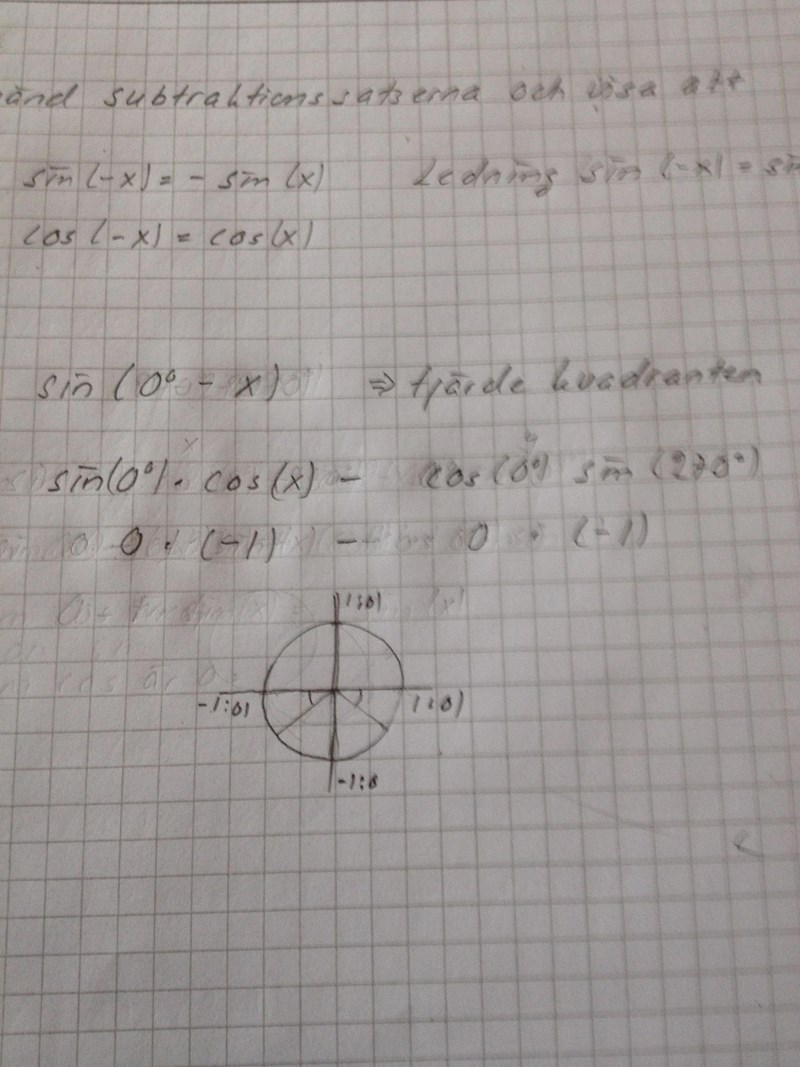 änd subtraktionssatserna och visa att
sin(-x) = - sin(x) Ledning sin(-x) = sin
cos(-x) = cos(x)
sin(0° - x) ⇒ fjärde kvadranten
sin(0°) · cos(x) - cos(0°) sin(270°)
0 · (-1) - 0 · (-1)
1:0)
-1:0) 1:0)
-1:0